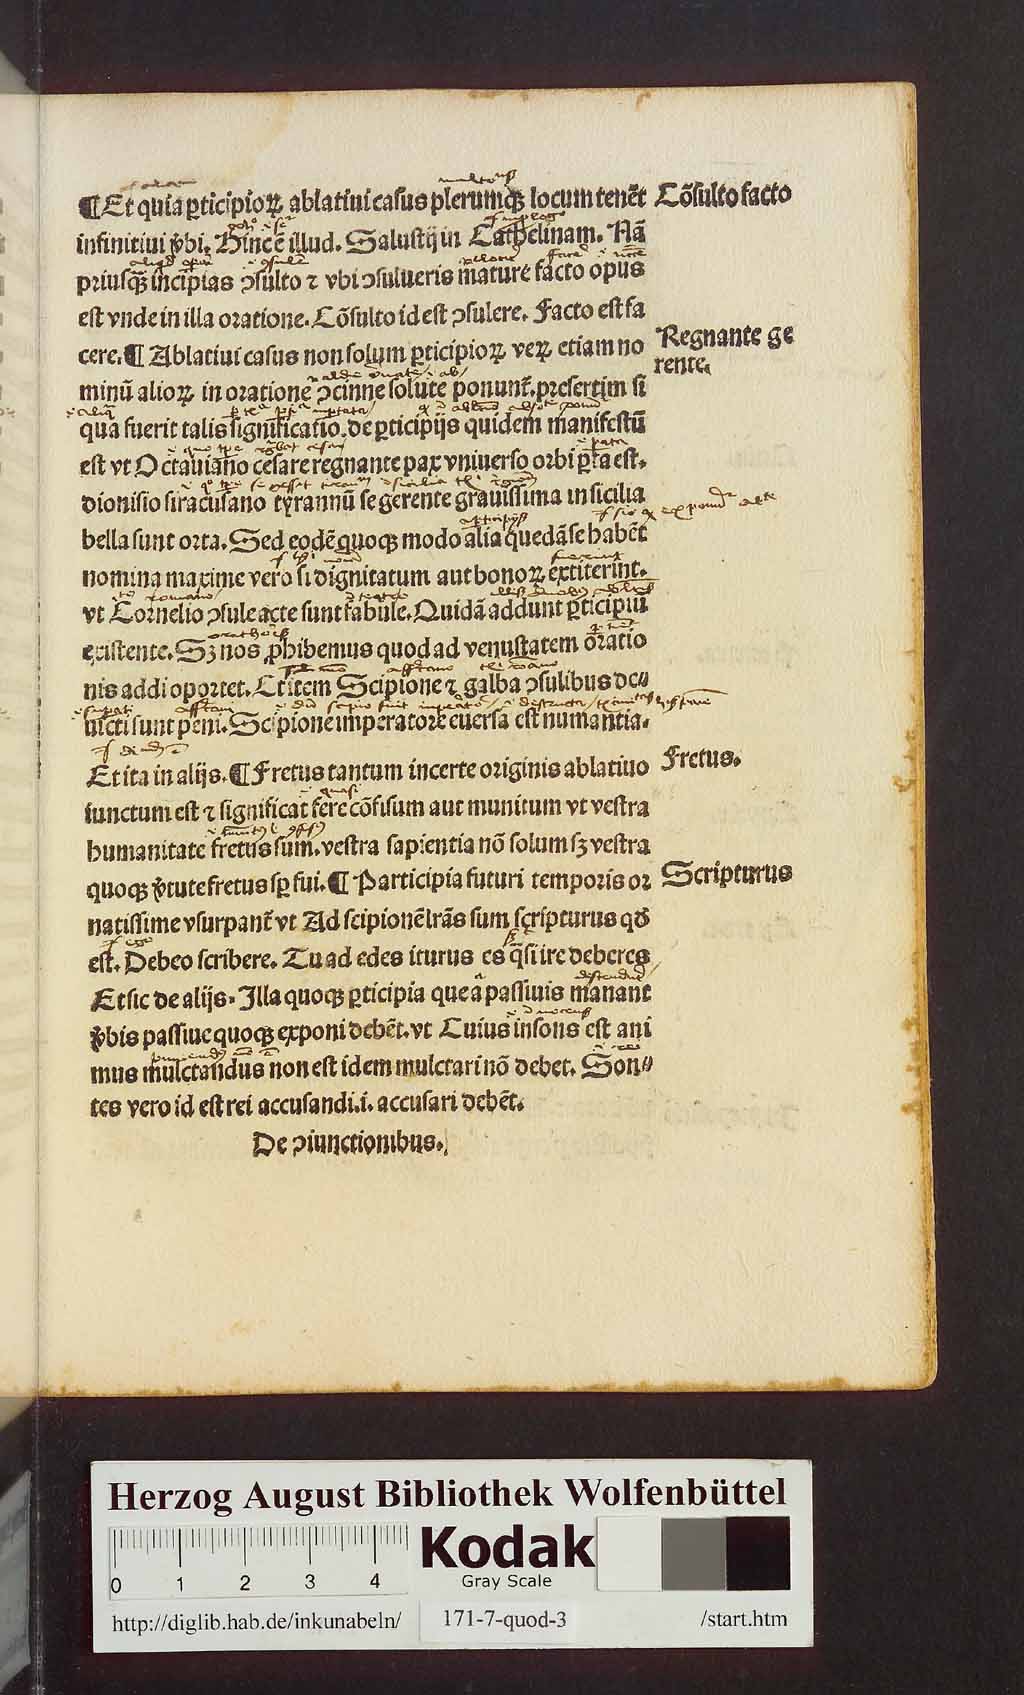 ¶Et quia ꝑticipioꝝ ablatiui casus plerumqꝫ locum tenēt
Cōsulto facto
infinitiui ꝟbi. Hinc ē illud. Salustij in Cathelinam. Nā
priusqꝫ incipias ꝯsulto ⁊ vbi ꝯsulueris mature facto opus
est vnde in illa oratione. Cōsulto id est ꝯsulere. Facto est fa
cere. ¶ Ablatiui casus non solum ꝑticipioꝝ veꝝ etiam no
Regnante ge
rente.
minū alioꝝ in oratione ꝯcinne solute ponunt̄. presertim si
qua fuerit talis significatio. de ꝑticipijs quidem manifestū
est vt Octauiano cesare regnante pax vniuerso orbi ꝑta est.
dionisio siracusano tyrannū se gerente grauissima in sicilia
bella sunt orta. Sed eodē quoqꝫ modo alia quedā se habēt
nomina maxime vero si dignitatum aut bonoꝝ extiterint.
vt Cornelio ꝯsule acte sunt fabule. Quidā addunt ꝑticipiū
existente. Sꝫ nos ꝓhibemus quod ad venustatem oratio
nis addi oportet. Et item Scipione ⁊ galba ꝯsulibus de⸗
uicti sunt peni. Scipione imperatore euersa est numantia.
Et ita in alijs. ¶ Fretus tantum incerte originis ablatiuo
Fretus.
iunctum est ⁊ significat fere cōfisum aut munitum vt vestra
humanitate fretus sum. vestra sapientia nō solum sꝫ vestra
quoqꝫ ꝟtute fretus sꝑ fui. ¶ Participia futuri temporis or
Scripturus
natissime vsurpant̄ vt Ad scipionē lr̄as sum scripturus qđ
est. Debeo scribere. Tu ad edes iturus es q̄si ire deberes
Et sic de alijs. Illa quoqꝫ ꝑticipia que a passiuis manant
ꝟbis passiue quoqꝫ exponi debēt. vt Cuius insons est ani
mus mulctandus non est idem mulctari nō debet. Son⸗
tes vero id est rei accusandi .i. accusari debēt.
De ꝯiunctionibus.
Herzog August Bibliothek Wolfenbüttel
0 1 2 3 4
Kodak
Gray Scale
http://diglib.hab.de/inkunabeln/ 171-7-quod-3 /start.htm